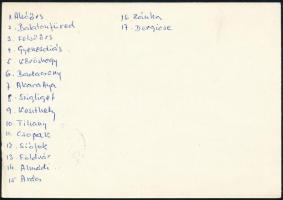 1. Alsóörs
2. Balatonfüred
3. Felsőörs
4. Gyenesdiás
5. Kőröshegy
6. Badacsony
7. Akarattya
8. Szigliget
9. Keszthely
10. Tihany
11. Csopak
12. Siófok
13. Földvár
14. Almádi
15. Arács
16. Zánka
17. Dörgicse